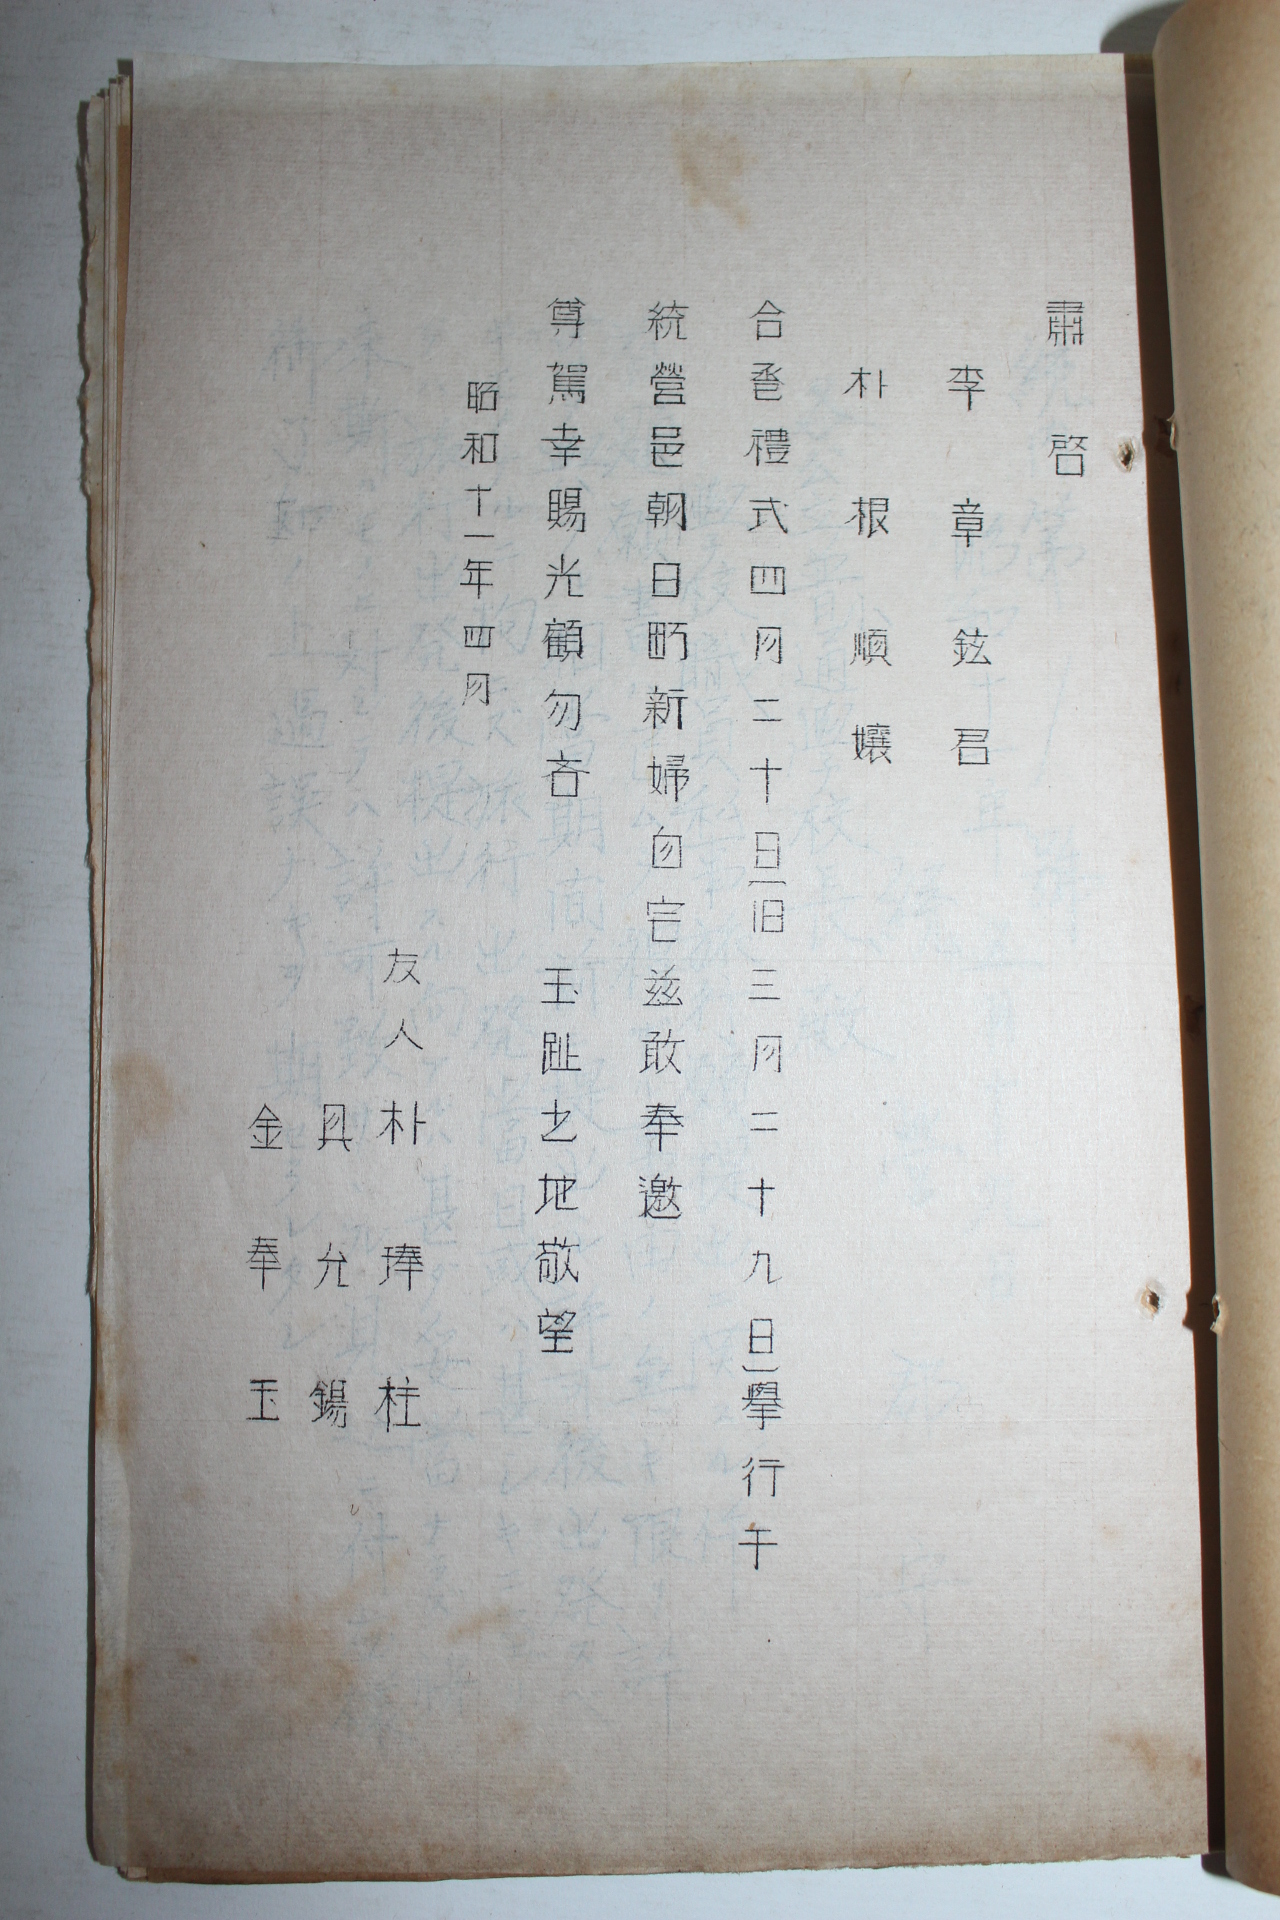 肅啓
李章鉉君
朴根順孃
合卺禮式四月二十日(旧三月二十九日)擧行于
統營邑朝日町新婦自宅玆敢奉邀
尊駕幸賜光顧勿吝 玉趾之地敬望
昭和十一年四月
友人 朴琫柱
具允錫
金奉玉